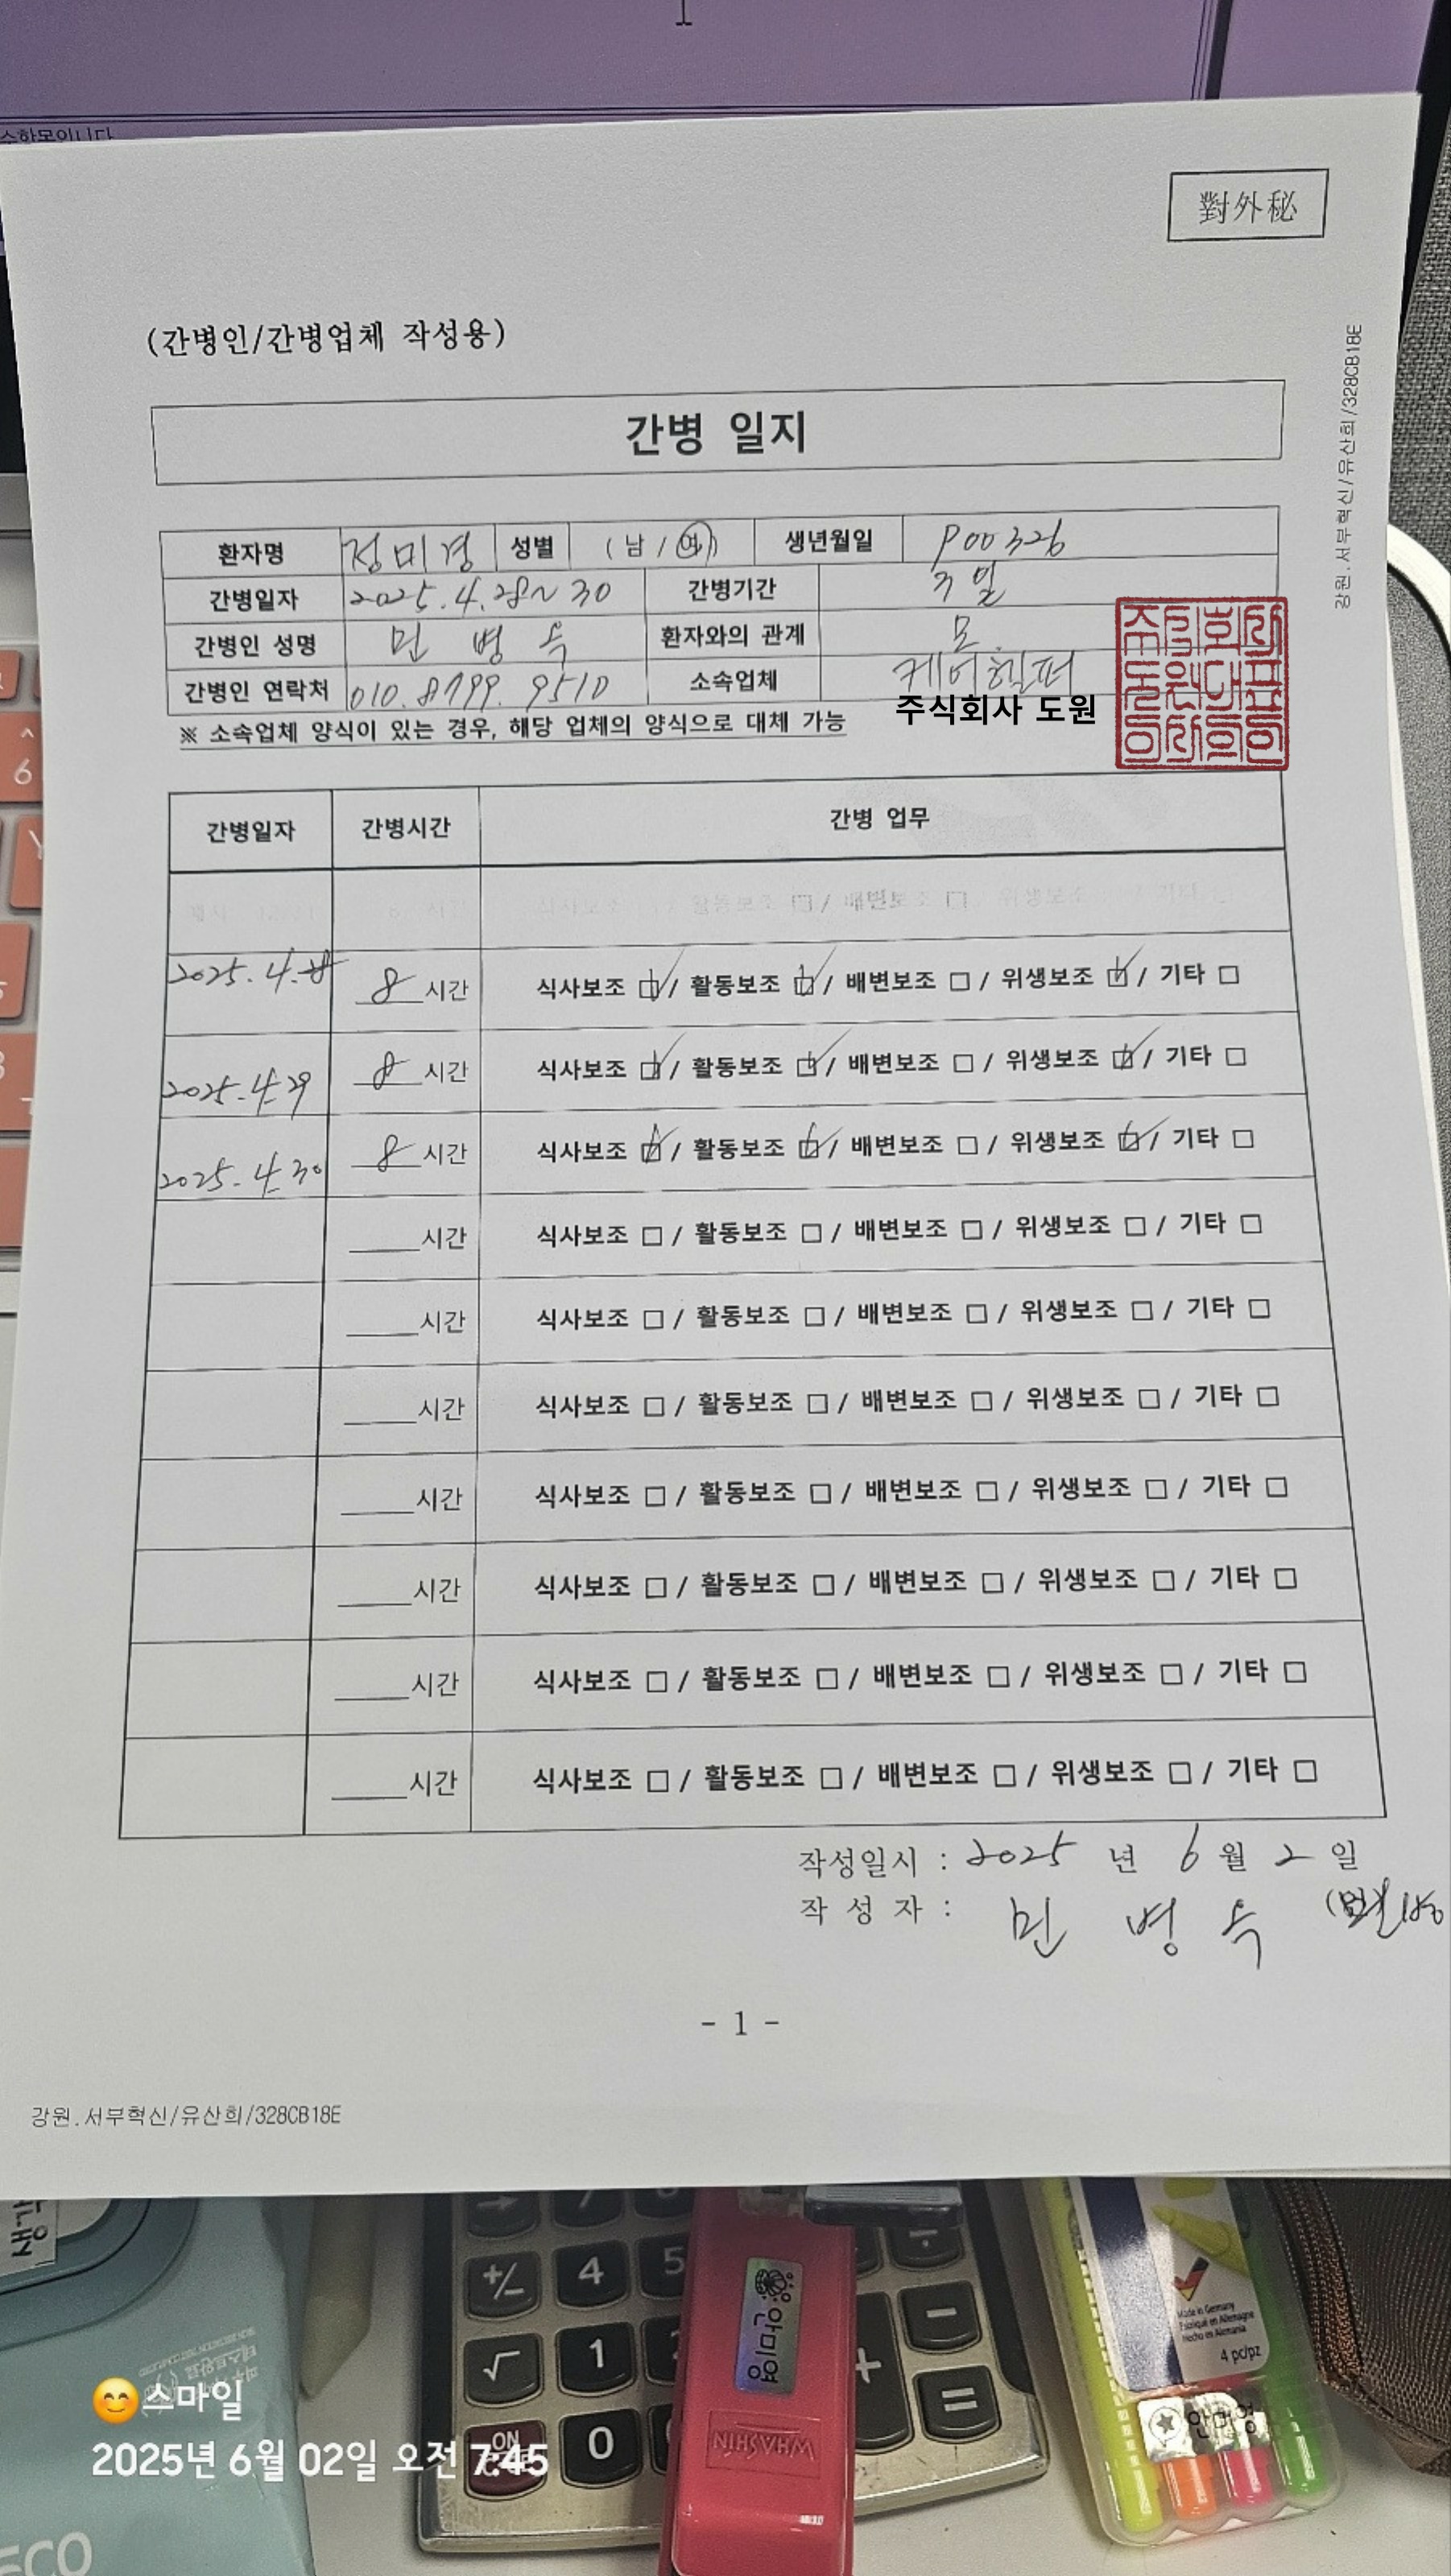 수항목입니다
對外秘
(간병인/간병업체 작성용)
강원.서부혁신/유산희/328CB18E
간병 일지
환자명 정미경 성별 (남/여) 생년월일 P00326
간병일자 2025.4.28~30 간병기간 3일
간병인 성명 민병숙 환자와의 관계 모
간병인 연락처 010.8799.9510 소속업체 케어헬퍼
주식회사 도원
※ 소속업체 양식이 있는 경우, 해당 업체의 양식으로 대체 가능
간병일자 간병시간 간병 업무
2025.4.28 8시간 식사보조 ☑ / 활동보조 ☑ / 배변보조 □ / 위생보조 ☑ / 기타 □
2025.4.29 8시간 식사보조 ☑ / 활동보조 ☑ / 배변보조 □ / 위생보조 ☑ / 기타 □
2025.4.30 8시간 식사보조 ☑ / 활동보조 ☑ / 배변보조 □ / 위생보조 ☑ / 기타 □
____시간 식사보조 □ / 활동보조 □ / 배변보조 □ / 위생보조 □ / 기타 □
____시간 식사보조 □ / 활동보조 □ / 배변보조 □ / 위생보조 □ / 기타 □
____시간 식사보조 □ / 활동보조 □ / 배변보조 □ / 위생보조 □ / 기타 □
____시간 식사보조 □ / 활동보조 □ / 배변보조 □ / 위생보조 □ / 기타 □
____시간 식사보조 □ / 활동보조 □ / 배변보조 □ / 위생보조 □ / 기타 □
____시간 식사보조 □ / 활동보조 □ / 배변보조 □ / 위생보조 □ / 기타 □
____시간 식사보조 □ / 활동보조 □ / 배변보조 □ / 위생보조 □ / 기타 □
작성일시 : 2025 년 6 월 2 일
작 성 자 : 민병숙
- 1 -
강원.서부혁신/유산희/328CB18E
+/- 4 5
√ 1
ON 0
÷
-
+
=
안미영
WHASHIN
Made in Germany
4 pc/pz
안미영
😊스마일
2025년 6월 02일 오전 7:45
ECO
6